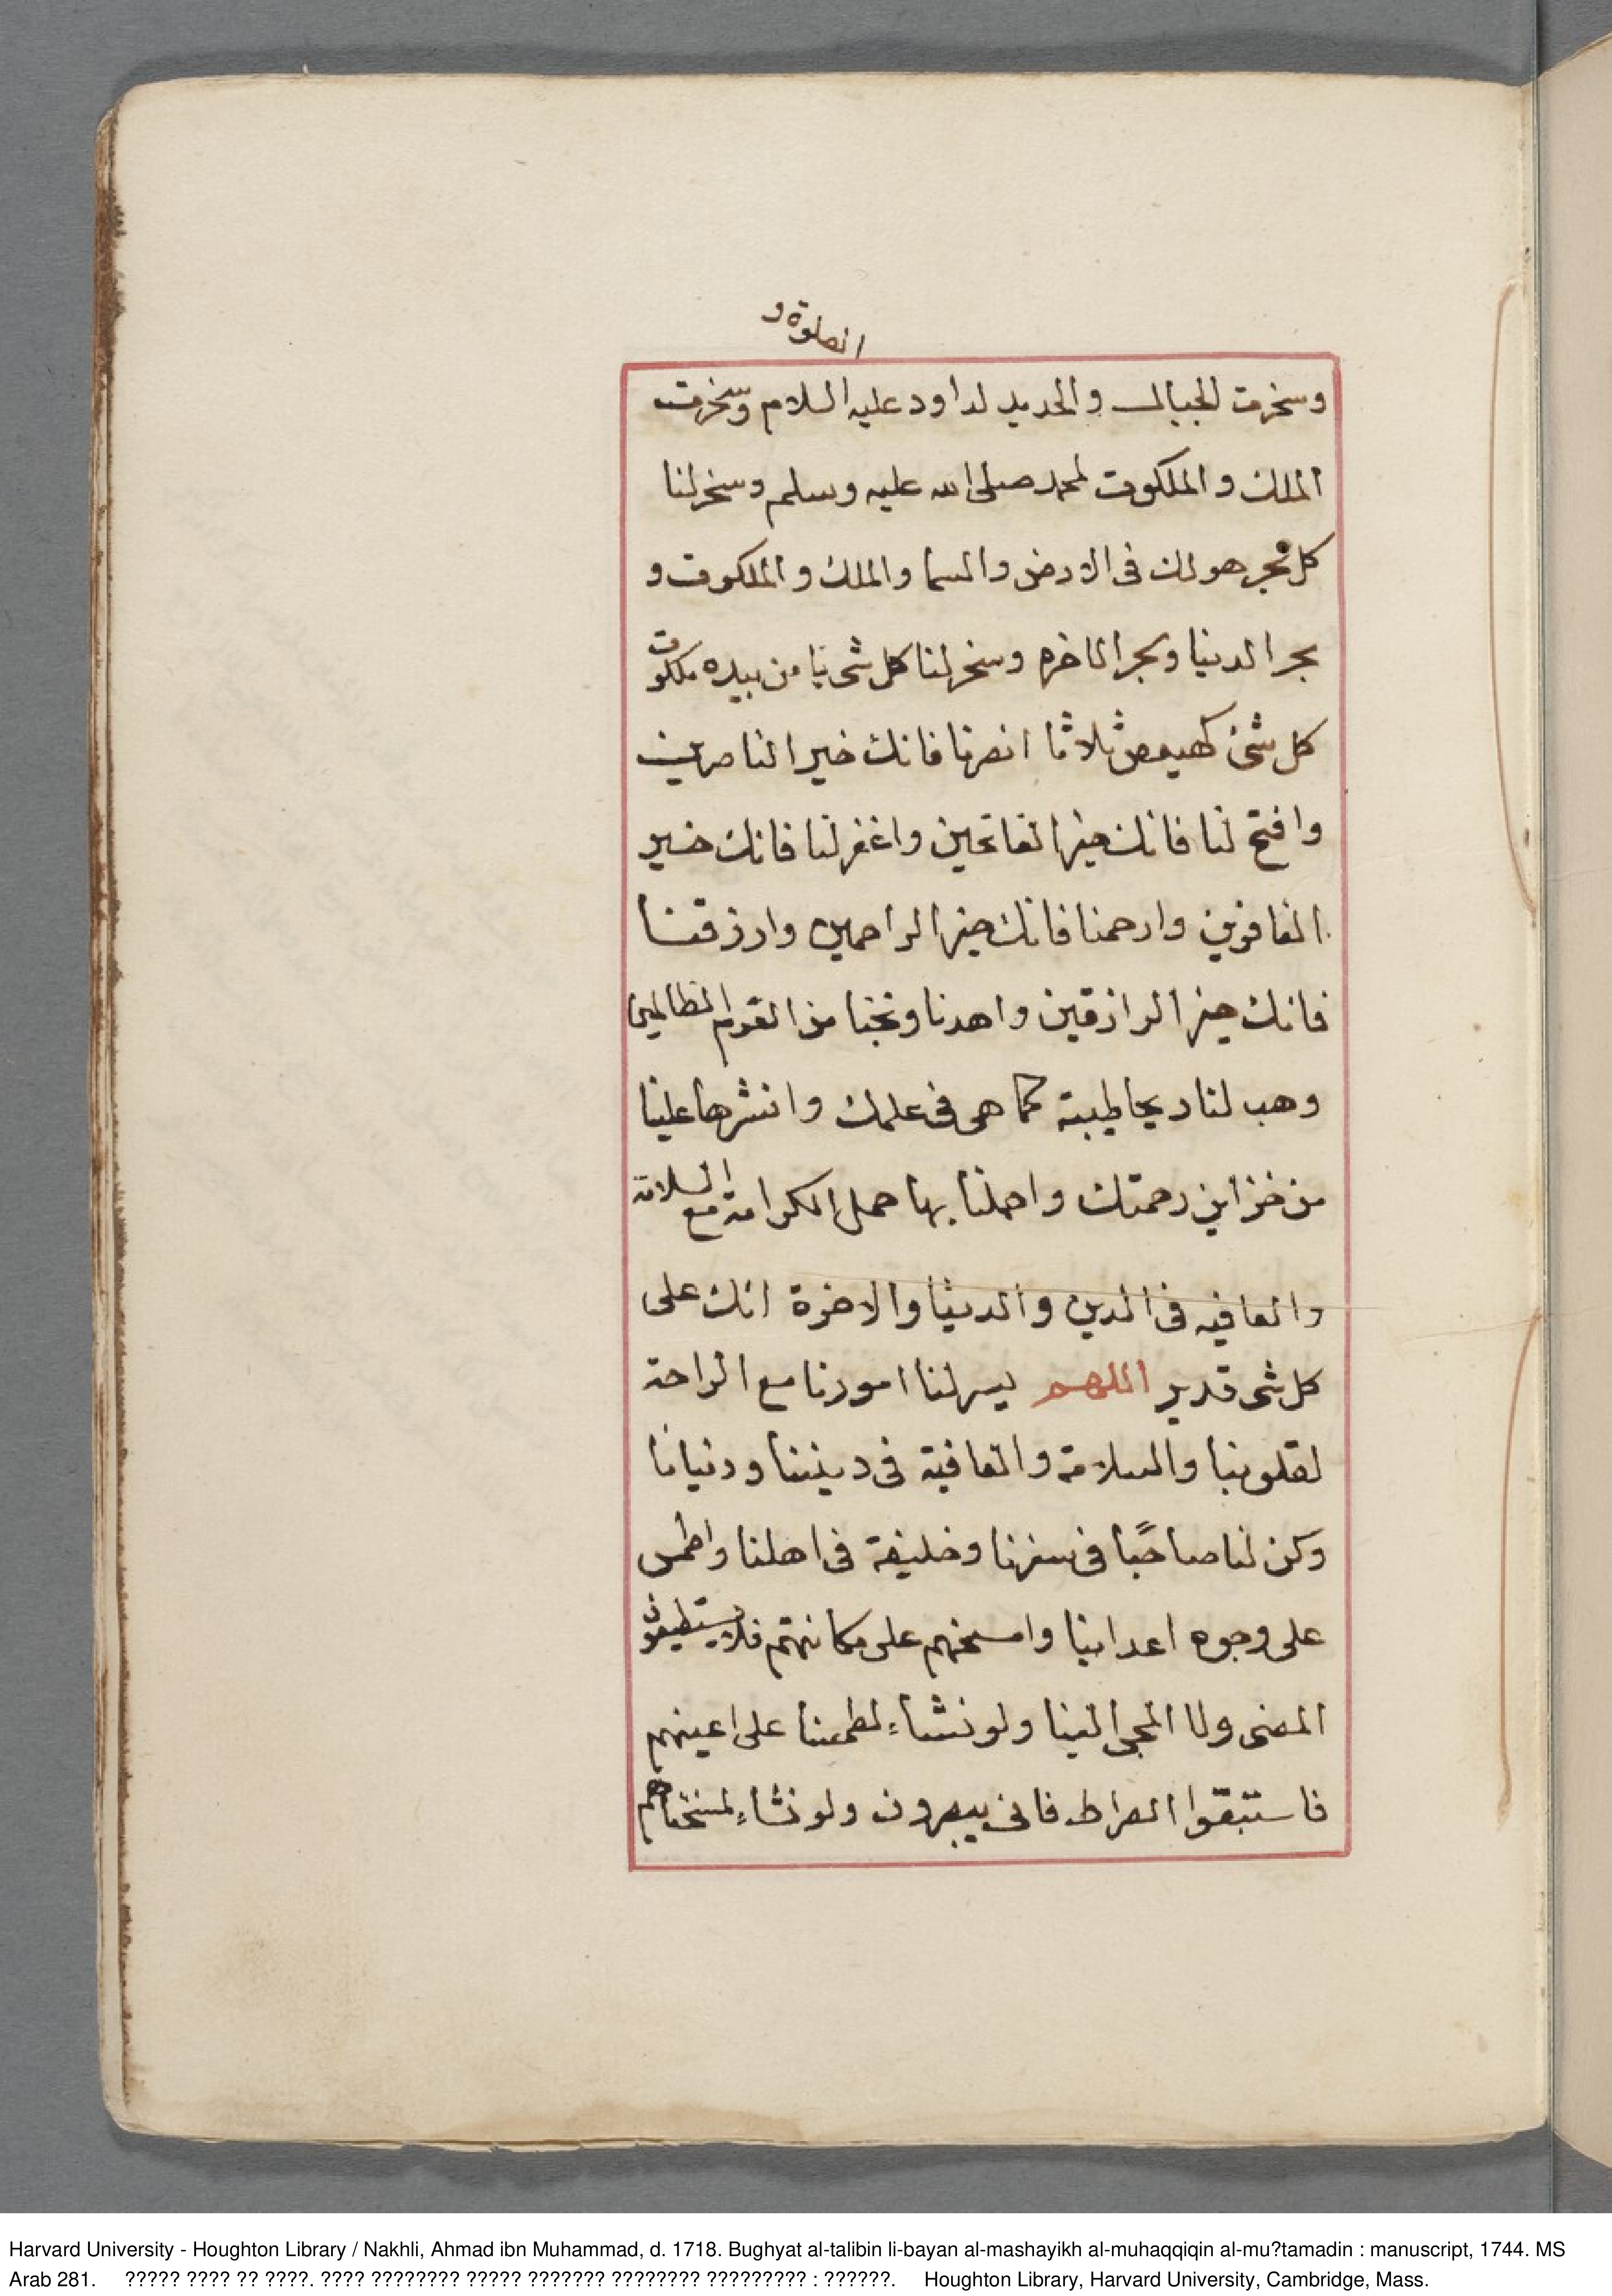 الصلوة و
وسخرت الجبال والحديد لداود عليه السلام وسخرت
الملك والملكوت لمحمد صلى الله عليه وسلم وسخر لنا
كل بحر هو لك فى الارض والسما والملك والملكوت و
بحر الدنيا وبحر الاخره وسخر لنا كل شى يا من بيده ملكوت
كل شئ كهيعص ثلاثا انصرنا فانك خير الناصرين
وافتح لنا فانك خير الفاتحين واغفر لنا فانك خير
الغافرين وارحمنا فانك خير الراحمين وارزقنا
فانك خير الرازقين واهدنا ونجنا من القوم الظالمين
وهب لنا ريحا طيبة كما هى فى علمك وانشرها علينا
من خزاين رحمتك واحملنا بها حمل الكرامة مع السلامة
والعافيه فى الدين والدنيا والاخرة انك على
كل شى قدير اللهم يسر لنا امورنا مع الراحة
لقلوبنا والسلامة والعافية فى ديننا ودنيانا
وكن لنا صاحبًا فى سفرنا وخليفة فى اهلنا واطمس
على وجوه اعداينا وامسخهم على مكانتهم فلا يستطيعون
المضى ولا المجى الينا ولو نشاء لطمسنا على اعينهم
فاستبقوا الصراط فانى يبصرون ولو نشاء لمسخناهم
Harvard University - Houghton Library / Nakhli, Ahmad ibn Muhammad, d. 1718. Bughyat al-talibin li-bayan al-mashayikh al-muhaqqiqin al-mu?tamadin : manuscript, 1744. MS
Arab 281. ????? ???? ?? ????. ???? ???????? ????? ??????? ???????? ????????? : ??????. Houghton Library, Harvard University, Cambridge, Mass.